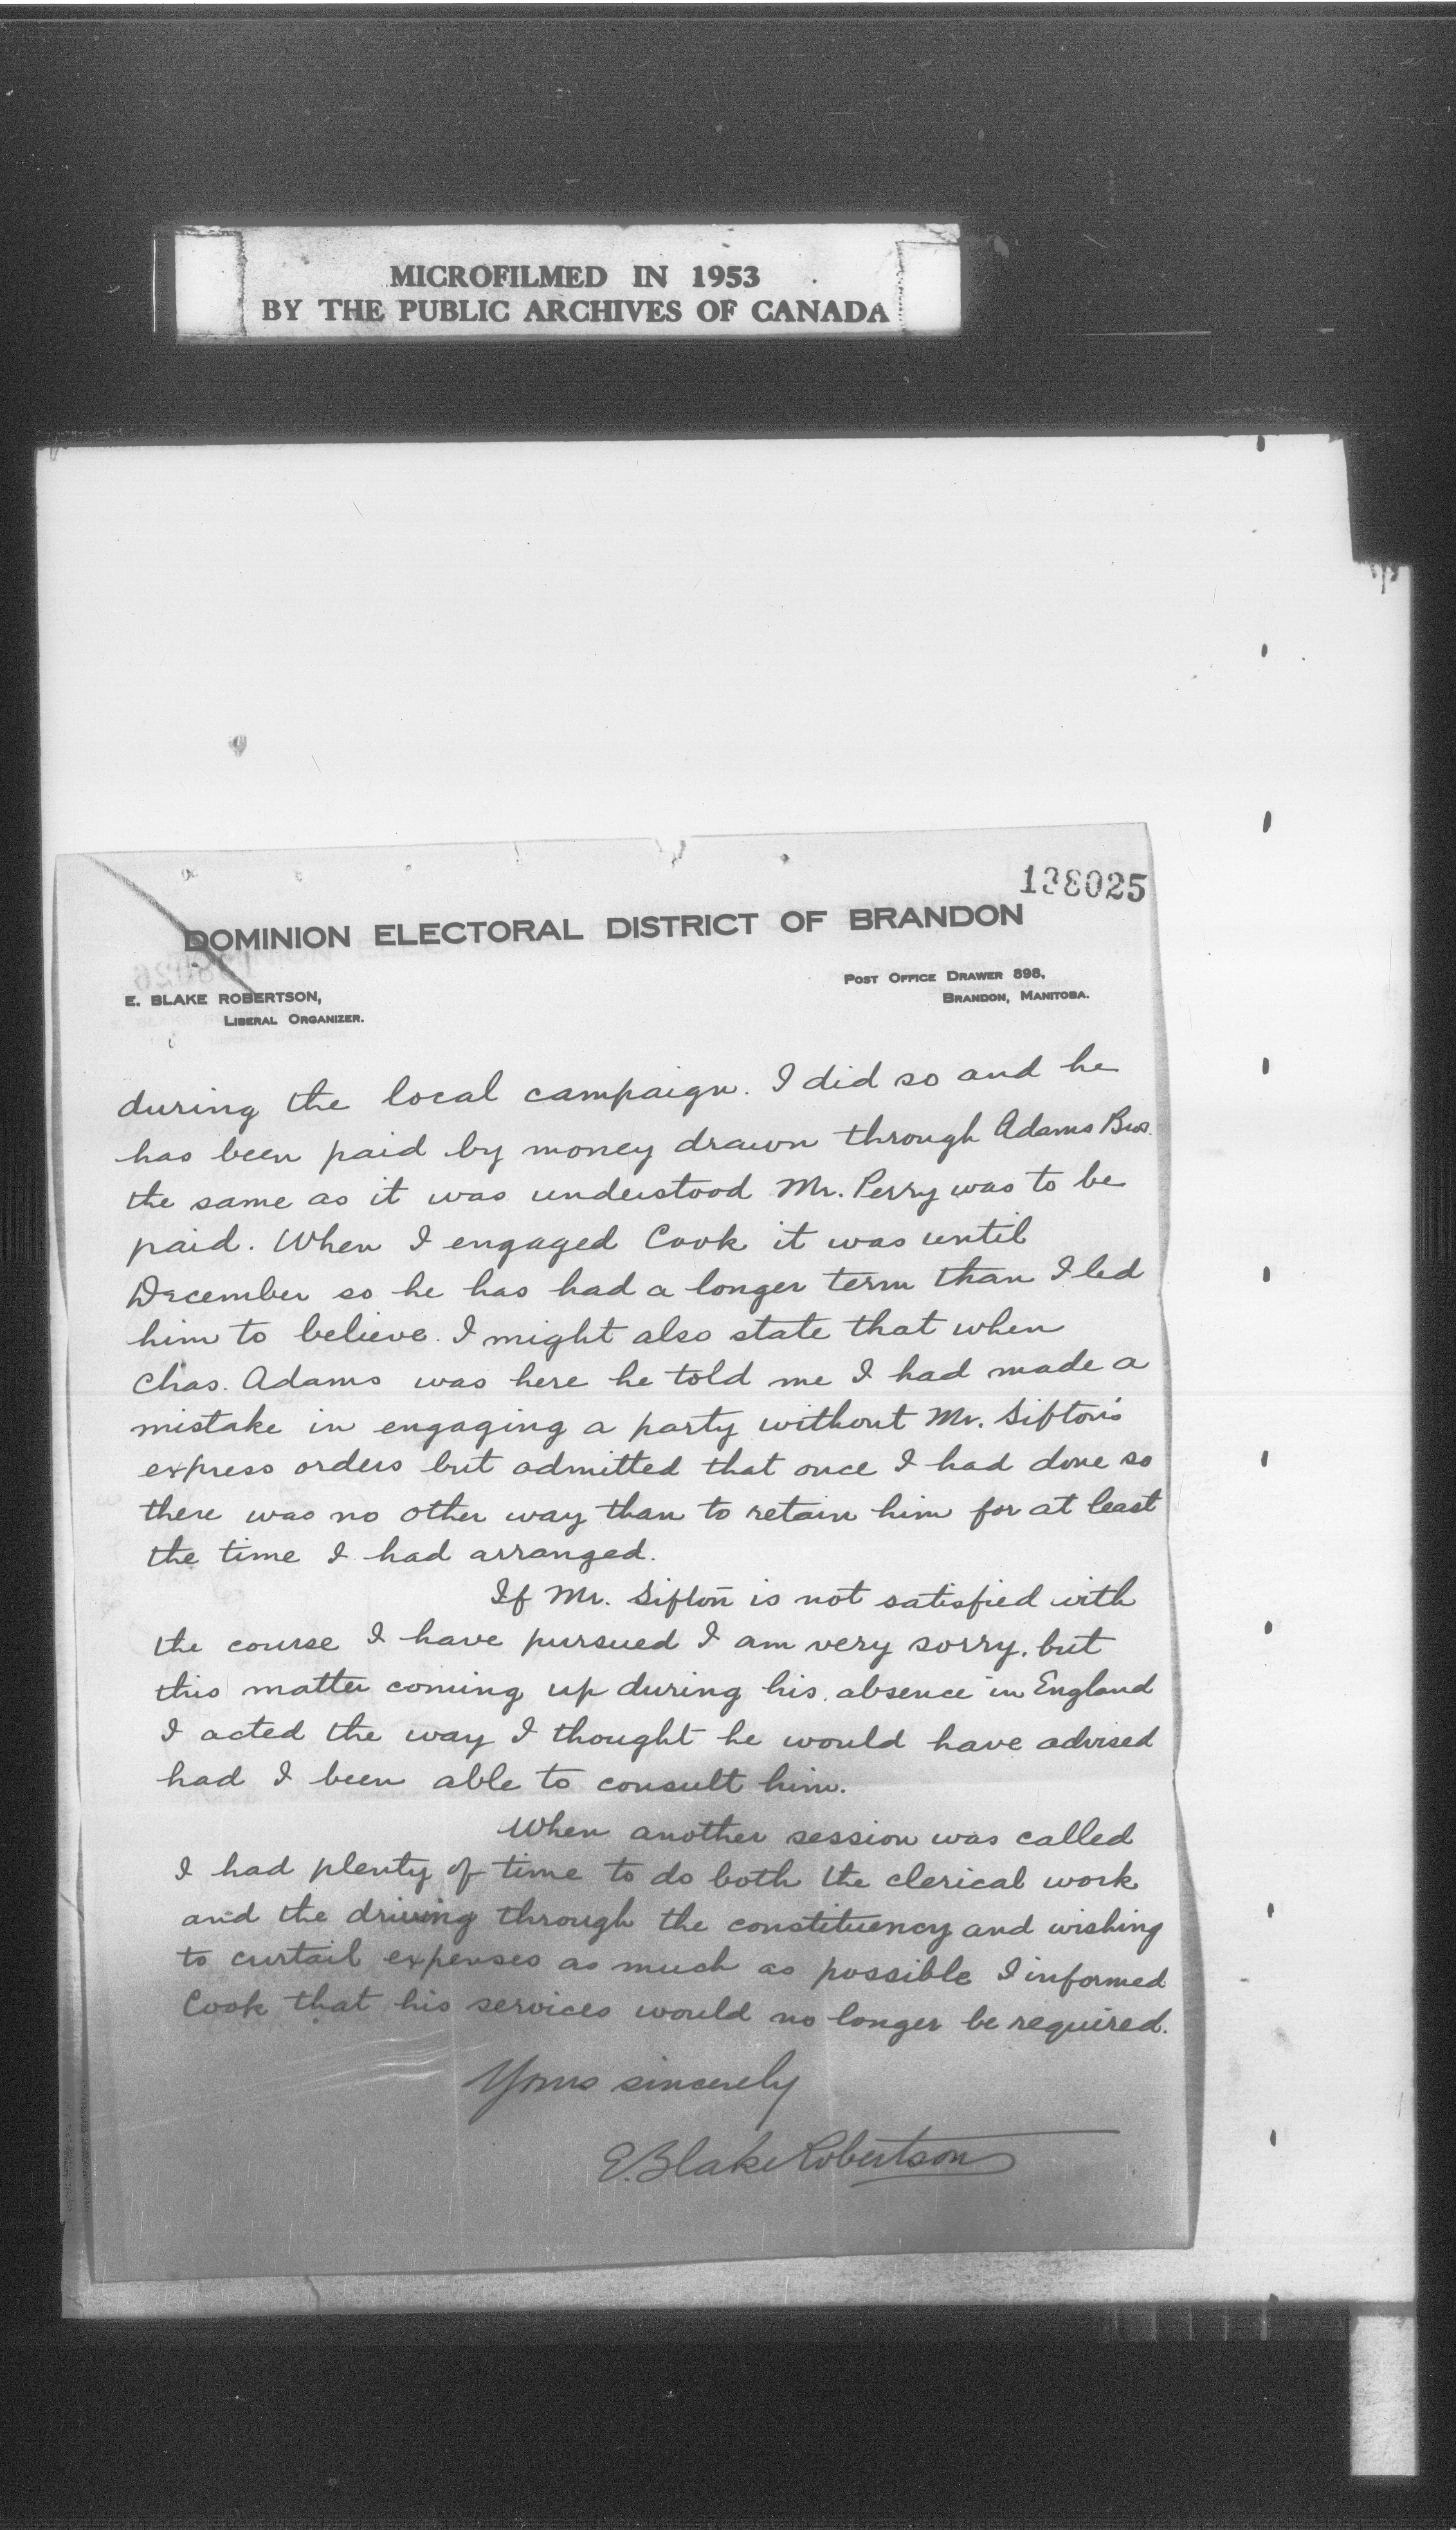 MICROFILMED IN 1953
BY THE PUBLIC ARCHIVES OF CANADA
138025
DOMINION ELECTORAL DISTRICT OF BRANDON
E. BLAKE ROBERTSON,
LIBERAL ORGANIZER.
POST OFFICE DRAWER 898,
BRANDON, MANITOBA.
during the local campaign. I did so and he
has been paid by money drawn through Adams Bros.
the same as it was understood Mr. Perry was to be
paid. When I engaged Cook it was until
December so he has had a longer term than I led
him to believe. I might also state that when
Chas. Adams was here he told me I had made a
mistake in engaging a party without Mr. Sifton's
express orders but admitted that once I had done so
there was no other way than to retain him for at least
the time I had arranged.
If Mr. Sifton is not satisfied with
the course I have pursued I am very sorry, but
this matter coming up during his absence in England
I acted the way I thought he would have advised
had I been able to consult him.
When another session was called
I had plenty of time to do both the clerical work
and the driving through the constituency and wishing
to curtail expenses as much as possible I informed
Cook that his services would no longer be required.
Yours sincerely
E. Blake Robertson